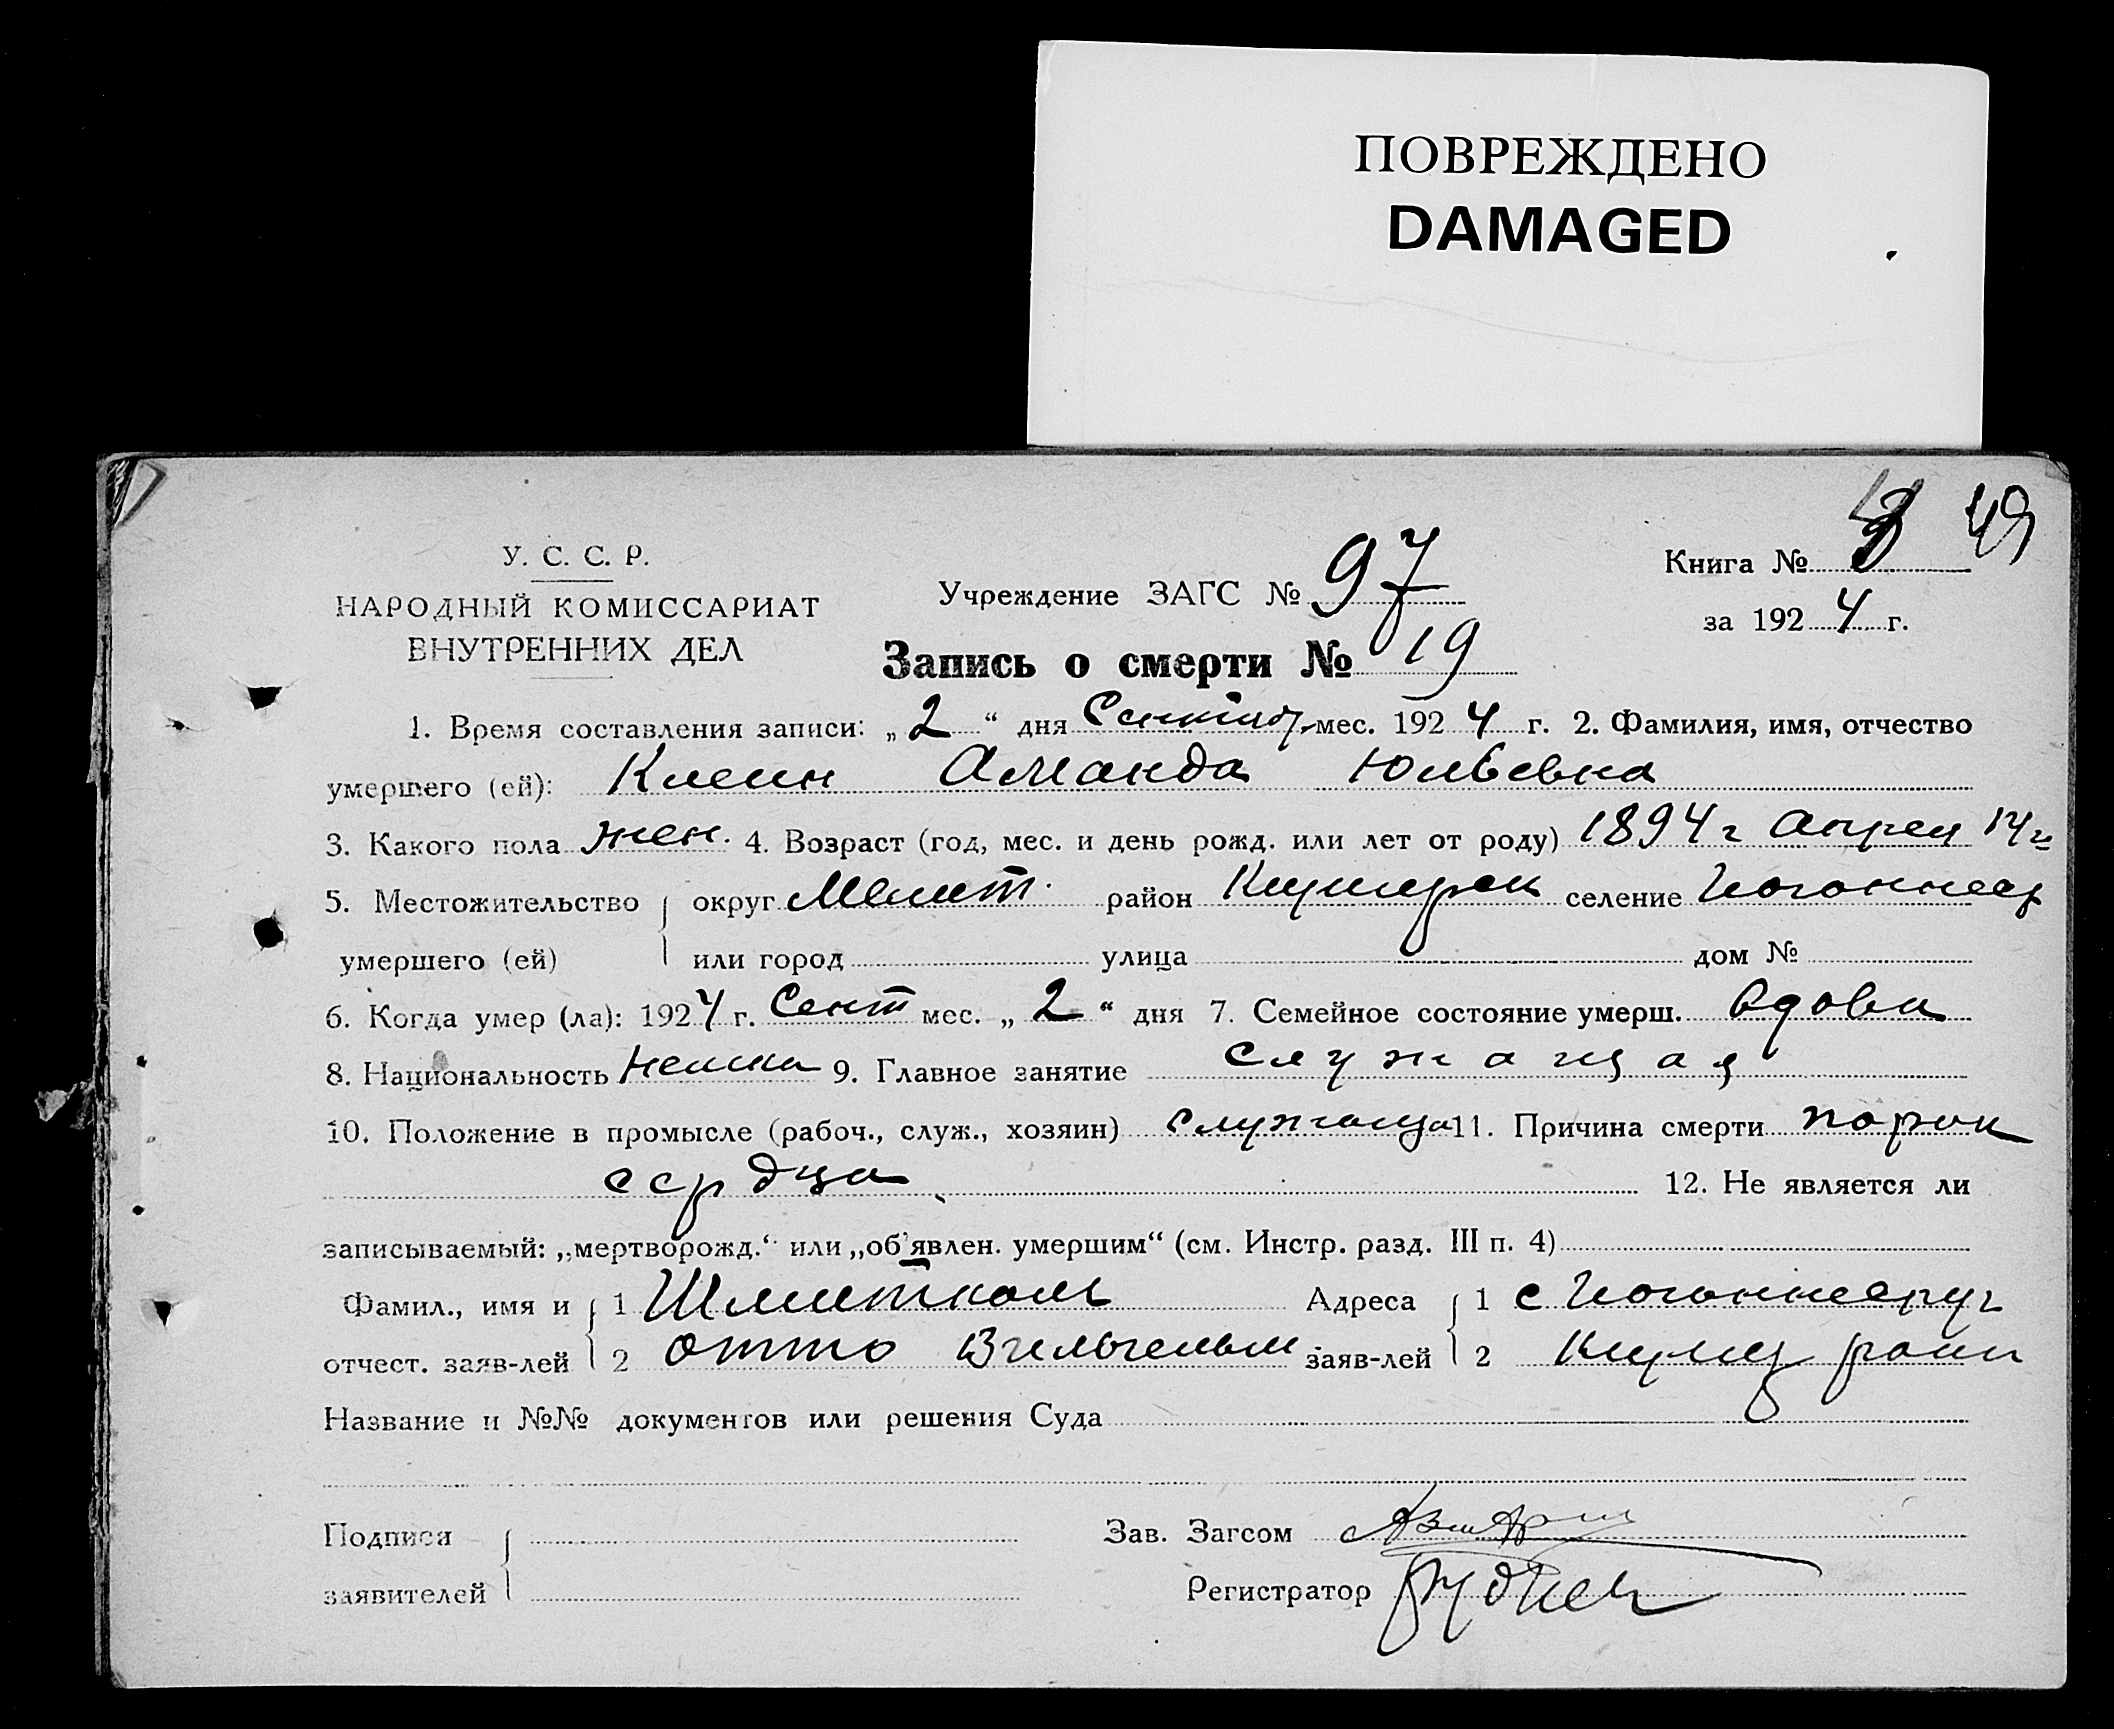 ПОВРЕЖДЕНО
DAMAGED
49
У. С. С. Р.
НАРОДНЫЙ КОМИССАРИАТ
ВНУТРЕННИХ ДЕЛ
Учреждение ЗАГС № 97
Книга №
за 1924 г.
Запись о смерти № 19
1. Время составления записи: „2“ дня мес. 1924 г. 2. Фамилия, имя, отчество
умершего (ей): Клеин Аманда Юльевна
3. Какого пола жен. 4. Возраст (год, мес. и день рожд. или лет от роду) 1894 г Апрел 14
5. Местожительство округ Мелит. район селение
умершего (ей) или город улица дом №
6. Когда умер (ла): 1924 г. Сент мес. „2“ дня 7. Семейное состояние умерш. вдова
8. Национальность немка 9. Главное занятие служащая
10. Положение в промысле (рабоч., служ., хозяин) служаща 11. Причина смерти порок
сердца 12. Не является ли
записываемый: „мертворожд.“ или „об'явлен. умершим“ (см. Инстр. разд. III п. 4)
Фамил., имя и 1 Адреса 1 с
отчест. заяв-лей 2 Отто Вильгельм заяв-лей 2
Название и №№ документов или решения Суда
Подписи Зав. Загсом
заявителей Регистратор